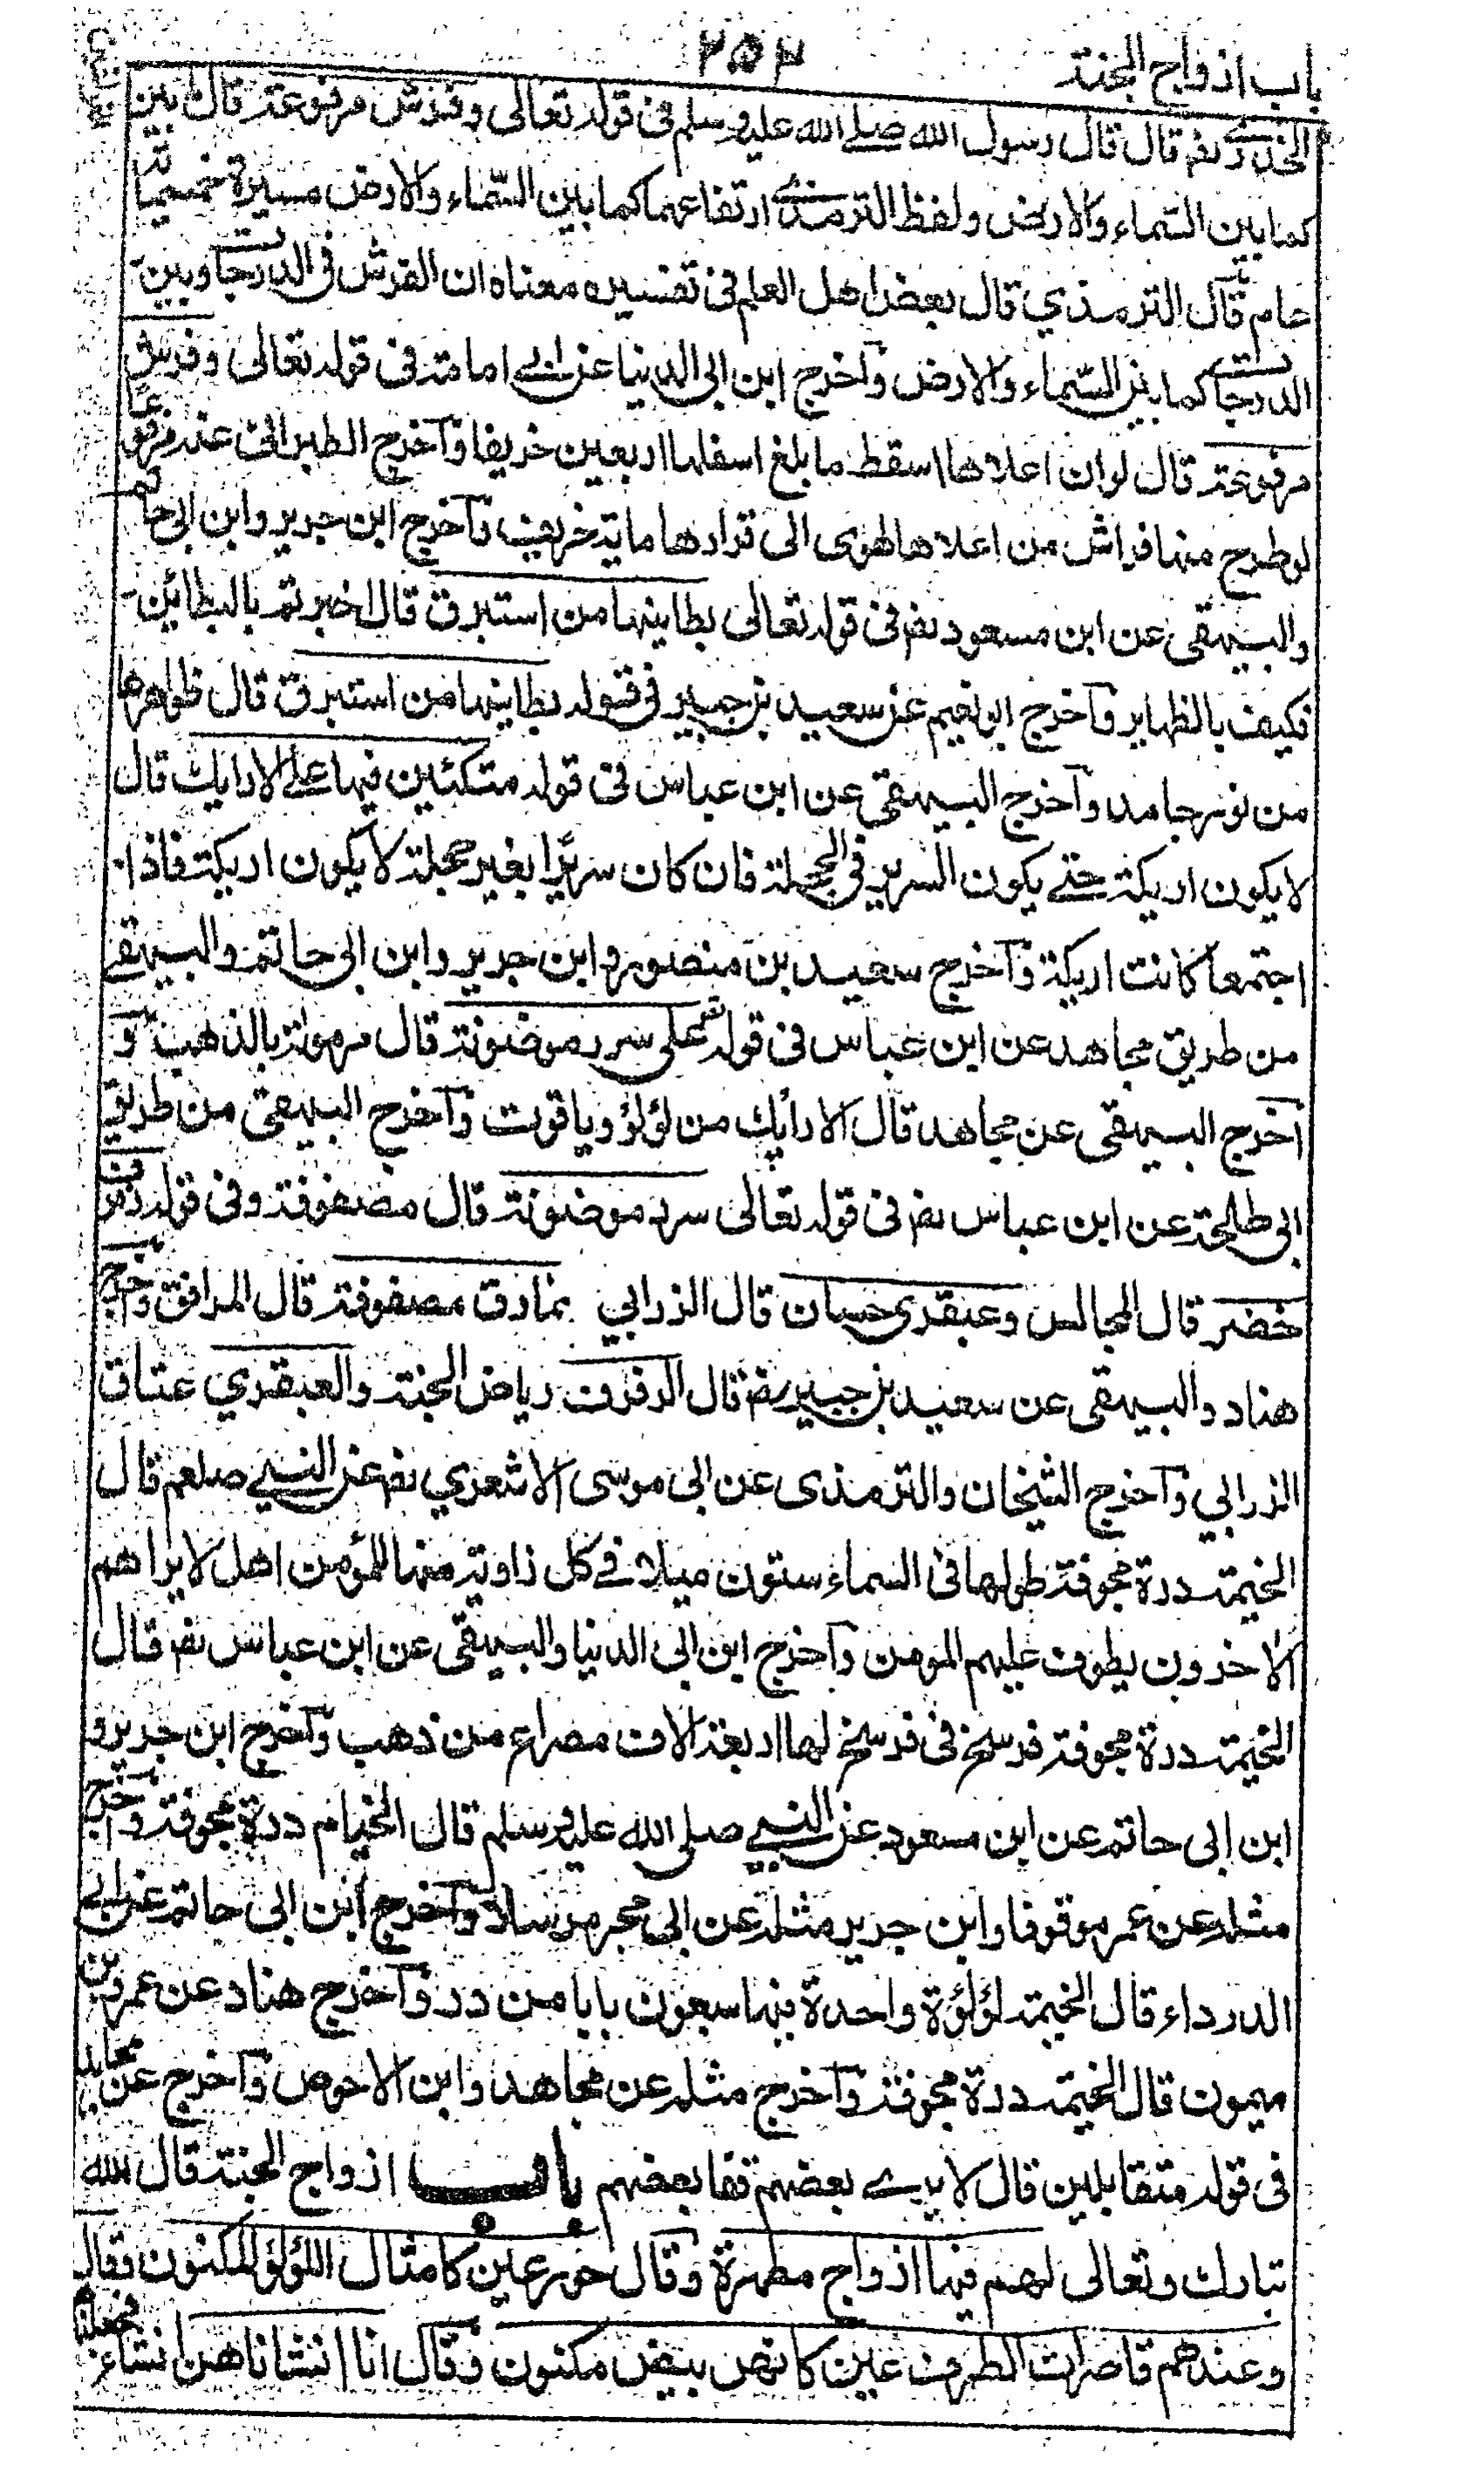 باب ازواج الجنة ٢٥٢
الخدري رض قال قال رسول الله صلى الله عليه وسلم في قوله تعالى وفرش مرفوعة قال بين
كما بين السماء والارض ولفظ الترمذي ارتفاعهما كما بين السماء والارض مسيرة خمسمائة
عام قال الترمذي قال بعض اهل العلم في تفسيره معناه ان الفرش في الدرجات وبين
الدرجات كما بين السماء والارض وآخرج ابن ابي الدنيا عن ابي امامة في قوله تعالى وفرش
مرفوعة قال لو ان اعلاها اسقط ما بلغ اسفلها اربعين خريفا وآخرج الطبراني عنه مرفوعا
لو طرح منها فراش من اعلاها لهوى الى قرارها ماية خريف وآخرج ابن جرير وابن ابي حاتم
والبيهقي عن ابن مسعود رض في قوله تعالى بطاينها من استبرق قال اخبرتم بالبطائن
فكيف بالظهاير وآخرج ابو نعيم عن سعيد بن جبير في قوله بطاينها من استبرق قال ظواهرها
من نور جامد وآخرج البيهقي عن ابن عباس في قوله متكئين فيها على الارايك قال
لا يكون اريكة حتى يكون السرير في الحجلة فان كان سريرا بغير حجلة لا يكون اريكة فاذا
اجتمعا كانت اريكة وآخرج سعيد بن منصور وابن جرير وابن ابي حاتم والبيهقي
من طريق مجاهد عن ابن عباس في قوله تع على سرر موضونة قال مرمولة بالذهب و
آخرج البيهقي عن مجاهد قال الارأيك من لؤلؤ وياقوت وآخرج البيهقي من طريق
ابي طلحة عن ابن عباس رض في قوله تعالى سرر موضونة قال مصفوفة وفي قوله رفرف
خضر قال المجالس وعبقري حسان قال الزرابي نمارق مصفوفة قال المرافق وآخرج
هناد والبيهقي عن سعيد بن جبير رض قال الرفرف رياض الجنة والعبقري عتاق
الزرابي وآخرج الشيخان والترمذي عن ابي موسى الاشعري رض عن النبي صلعم قال
الخيمة درة مجوفة طولها في السماء ستون ميلا في كل زاوية منها للمؤمن اهل لا يراهم
الاخرون يطوف عليهم المومن وآخرج ابن ابي الدنيا والبيهقي عن ابن عباس رض قال
الخيمة درة مجوفة فرسخ في فرسخ لها اربعة الاف مصراع من ذهب وآخرج ابن جرير و
ابن ابي حاتم عن ابن مسعود عن النبي صلى الله عليه وسلم قال الخيام درة مجوفة وآخرج
مثله عن عمر موقوفا وابن جرير مثله عن ابي مجر مرسلا وآخرج ابن ابي حاتم عن ابي
الدرداء قال الخيمة لؤلؤة واحدة فيها سبعون بابا من در وآخرج هناد عن عمرو بن
ميمون قال الخيمة درة مجوفة وآخرج مثله عن مجاهد وابن الاحوص وآخرج عن مجاهد
في قوله متقابلين قال لا يرى بعضهم قفا بعضهم باب ازواج الجنة قال الله
تبارك وتعالى لهم فيها ازواج مطهرة وقال حور عين كامثال اللؤلؤ المكنون وقال
وعندهم قاصرات الطرف عين كانهن بيض مكنون وقال انا انشاناهن انشاء فجعلنا